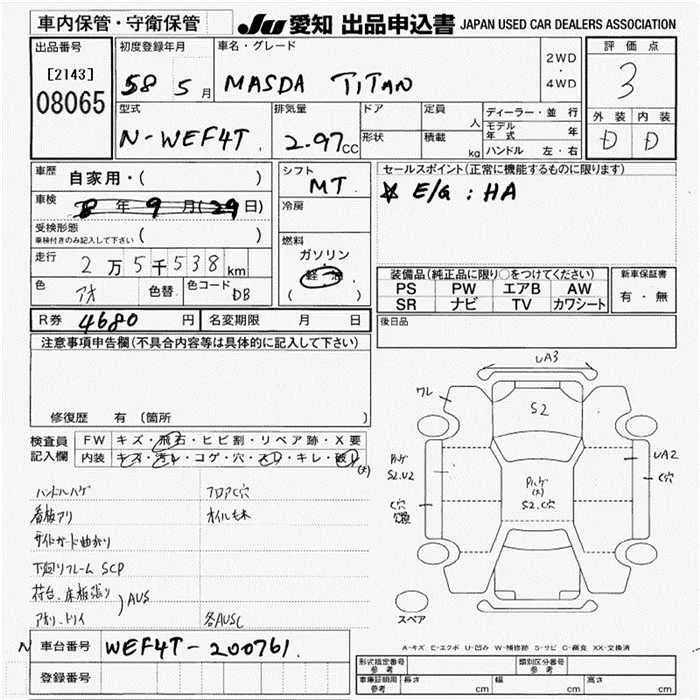 車内保管・守衛保管
JU 愛知 出品申込書 JAPAN USED CAR DEALERS ASSOCIATION
出品番号
[2143]
08065
初度登録年月
58 5月
車名・グレード
MASDA TITAN
2WD
・
4WD
評価点
3
外装 内装
D D
型式
N-WEF4T
排気量
2.97cc
ドア
形状
定員 人
積載 kg
ディーラー・並行
モデル年式 年
ハンドル 左・右
車歴
自家用・( )
車検
8年9月(29日)
受検形態
車検付きのみ記入して下さい ( )
走行
2万5千538km
色
アオ
色替
色コード DB
シフト
MT
冷房
燃料
ガソリン
軽油
( )
セールスポイント(正常に機能するものに限ります)
☆ E/G : HA
装備品(純正品に限り○をつけてください)
PS PW エアB AW
SR ナビ TV カワシート
新車保証書
有・無
R券 4680円
名変期限 月 日
後日品
注意事項申告欄(不具合内容等は具体的に記入して下さい)
修復歴 有(箇所 )
検査員
記入欄
FW キズ・飛石・ヒビ割・リペア跡・X要
内装 キズ・汚レ・コゲ・穴・スレ・キレ・破レ(大)
ハンドルハゲ フロアC穴
看板アリ オイルモレ
サイドガード曲がり
下廻りフレーム SCP
荷台、床板張り
AUS
アオリ、トリイ 各AUSC
UA3
ワレ
S2
S2.U2
C穴
S2.C穴
UA2
C穴
スペア
A-キズ E-エクボ U-凹み W-補修跡 S-サビ C-腐食 XX-交換済
N
車台番号 WEF4T-200761
登録番号
形式指定番号
参考
類別区分番号
参考
車庫証明用
参考
長さ cm 幅 cm 高さ cm